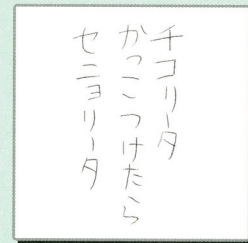 チコリータ
かっこつけたら
セニョリータ